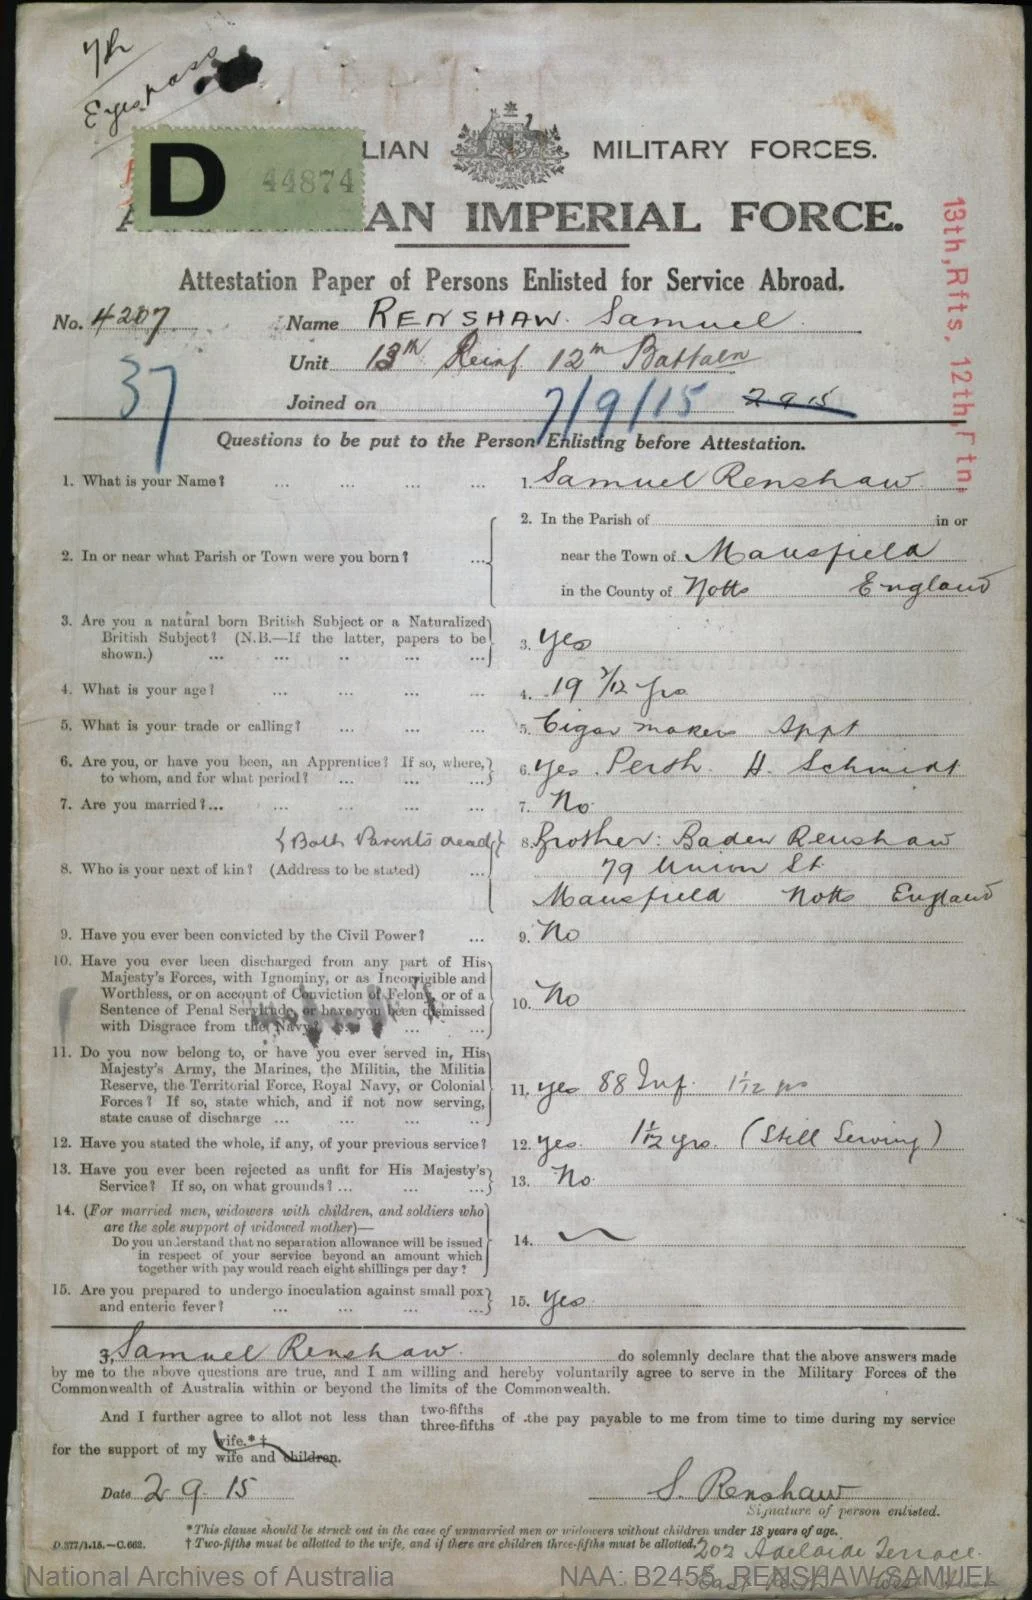 7th
Eyes pass
D 44874
LIAN MILITARY FORCES.
AN IMPERIAL FORCE.
13th, Rfts, 12th, Btn,
Attestation Paper of Persons Enlisted for Service Abroad.
No. 4207 Name RENSHAW. Samuel
Unit 13th Reinf 12th Battaln
37
Joined on 7/9/15 2 9 15
Questions to be put to the Person Enlisting before Attestation.
1. What is your Name? ... ... ... ... 1. Samuel Renshaw
2. In the Parish of in or
2. In or near what Parish or Town were you born? ... near the Town of Mansfield
in the County of Notts England
3. Are you a natural born British Subject or a Naturalized
British Subject? (N.B.—If the latter, papers to be
shown.) ... ... .. ... ... 3. Yes
4. What is your age? ... ... ... ... 4. 19 7/12 yrs
5. What is your trade or calling? ... ... ... 5. Cigar makers Appt
6. Are you, or have you been, an Apprentice? If so, where,
to whom, and for what period? ... ... ... 6. Yes. Perth. H. Schmidt
7. Are you married?... ... ... ... ... 7. No.
{Both Parents dead} 8. Brother: Baden Renshaw
8. Who is your next of kin? (Address to be stated) ... 79 Union St
Mansfield Notts England
9. Have you ever been convicted by the Civil Power? ... 9. No
10. Have you ever been discharged from any part of His
Majesty's Forces, with Ignominy, or as Incorrigible and
Worthless, or on account of Conviction of Felony, or of a
Sentence of Penal Servitude, or have you been dismissed
with Disgrace from the Navy? ... ... ... 10. No
11. Do you now belong to, or have you ever served in, His
Majesty's Army, the Marines, the Militia, the Militia
Reserve, the Territorial Force, Royal Navy, or Colonial
Forces? If so, state which, and if not now serving,
state cause of discharge ... ... ... .. 11. Yes 88 Inf. 1 1/12 yrs
12. Have you stated the whole, if any, of your previous service? 12. Yes. 1 1/12 yrs. (Still Serving)
13. Have you ever been rejected as unfit for His Majesty's
Service? If so, on what grounds? ... ... ... 13. No.
14. (For married men, widowers with children, and soldiers who
are the sole support of widowed mother)—
Do you understand that no separation allowance will be issued
in respect of your service beyond an amount which
together with pay would reach eight shillings per day? 14.
15. Are you prepared to undergo inoculation against small pox
and enteric fever? ... ... ... ... 15. Yes.
I, Samuel Renshaw. do solemnly declare that the above answers made
by me to the above questions are true, and I am willing and hereby voluntarily agree to serve in the Military Forces of the
Commonwealth of Australia within or beyond the limits of the Commonwealth.
And I further agree to allot not less than two-fifths three-fifths of the pay payable to me from time to time during my service
for the support of my wife.*† wife and children.
Date 2 9 15 S. Renshaw
Signature of person enlisted.
*This clause should be struck out in the case of unmarried men or widowers without children under 18 years of age.
D.377/1.15.—C.662. † Two-fifths must be allotted to the wife, and if there are children three-fifths must be allotted.
202 Adelaide Terrace.
East Perth
National Archives of Australia NAA: B2455, RENSHAW SAMUEL